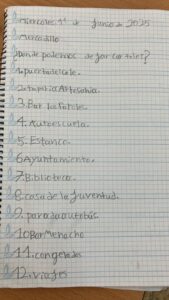 Miércoles 1º de junio de 2025
Mercadillo
¿Donde podemos dejar carteles?
1. puerta del cole.
2. tapatia Artesania
3. Bar los faroles.
4. Autoescuela.
5. Estanco.
6 Ayuntamiento.
7. Biblioteca.
8. casa de la Juventud.
9. parada autobús
10 Bar Menacho
11. congelados
12. viajes